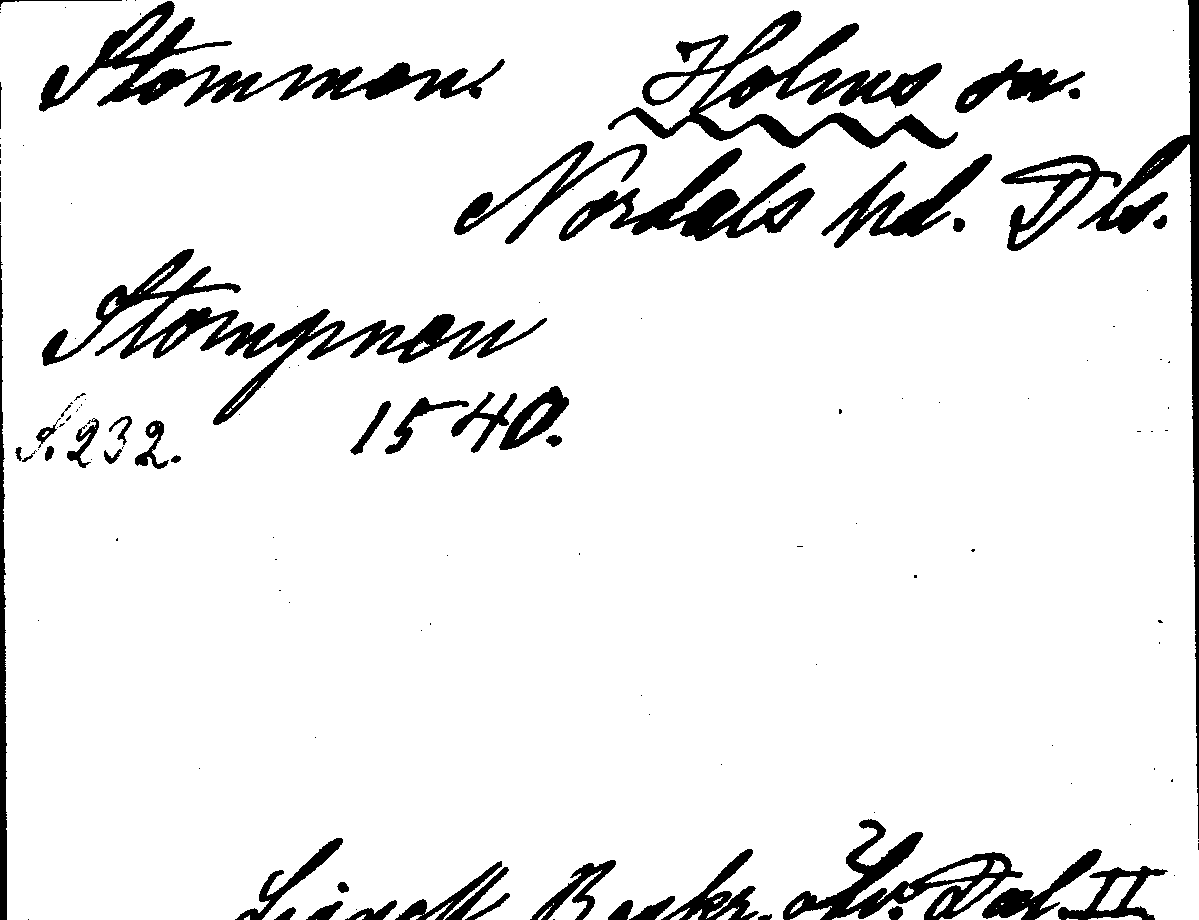 Stommen. Holms sn.
Nordals hd. Dls.
Stompnen
S. 232. 1540.
Lignell Beskr. Dal II